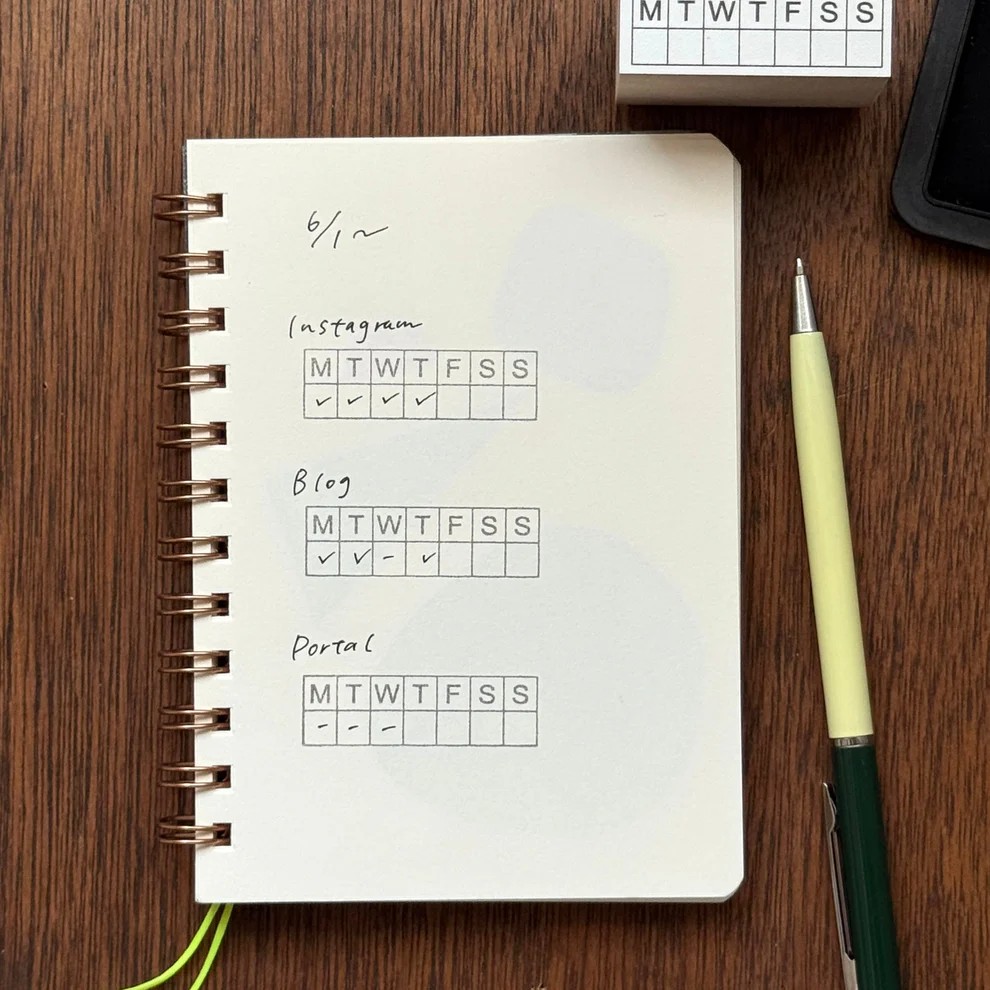 M T W T F S S
6/1~
Instagram
M T W T F S S
✓ ✓ ✓ ✓
Blog
M T W T F S S
✓ ✓ - ✓
Portal
M T W T F S S
- - -